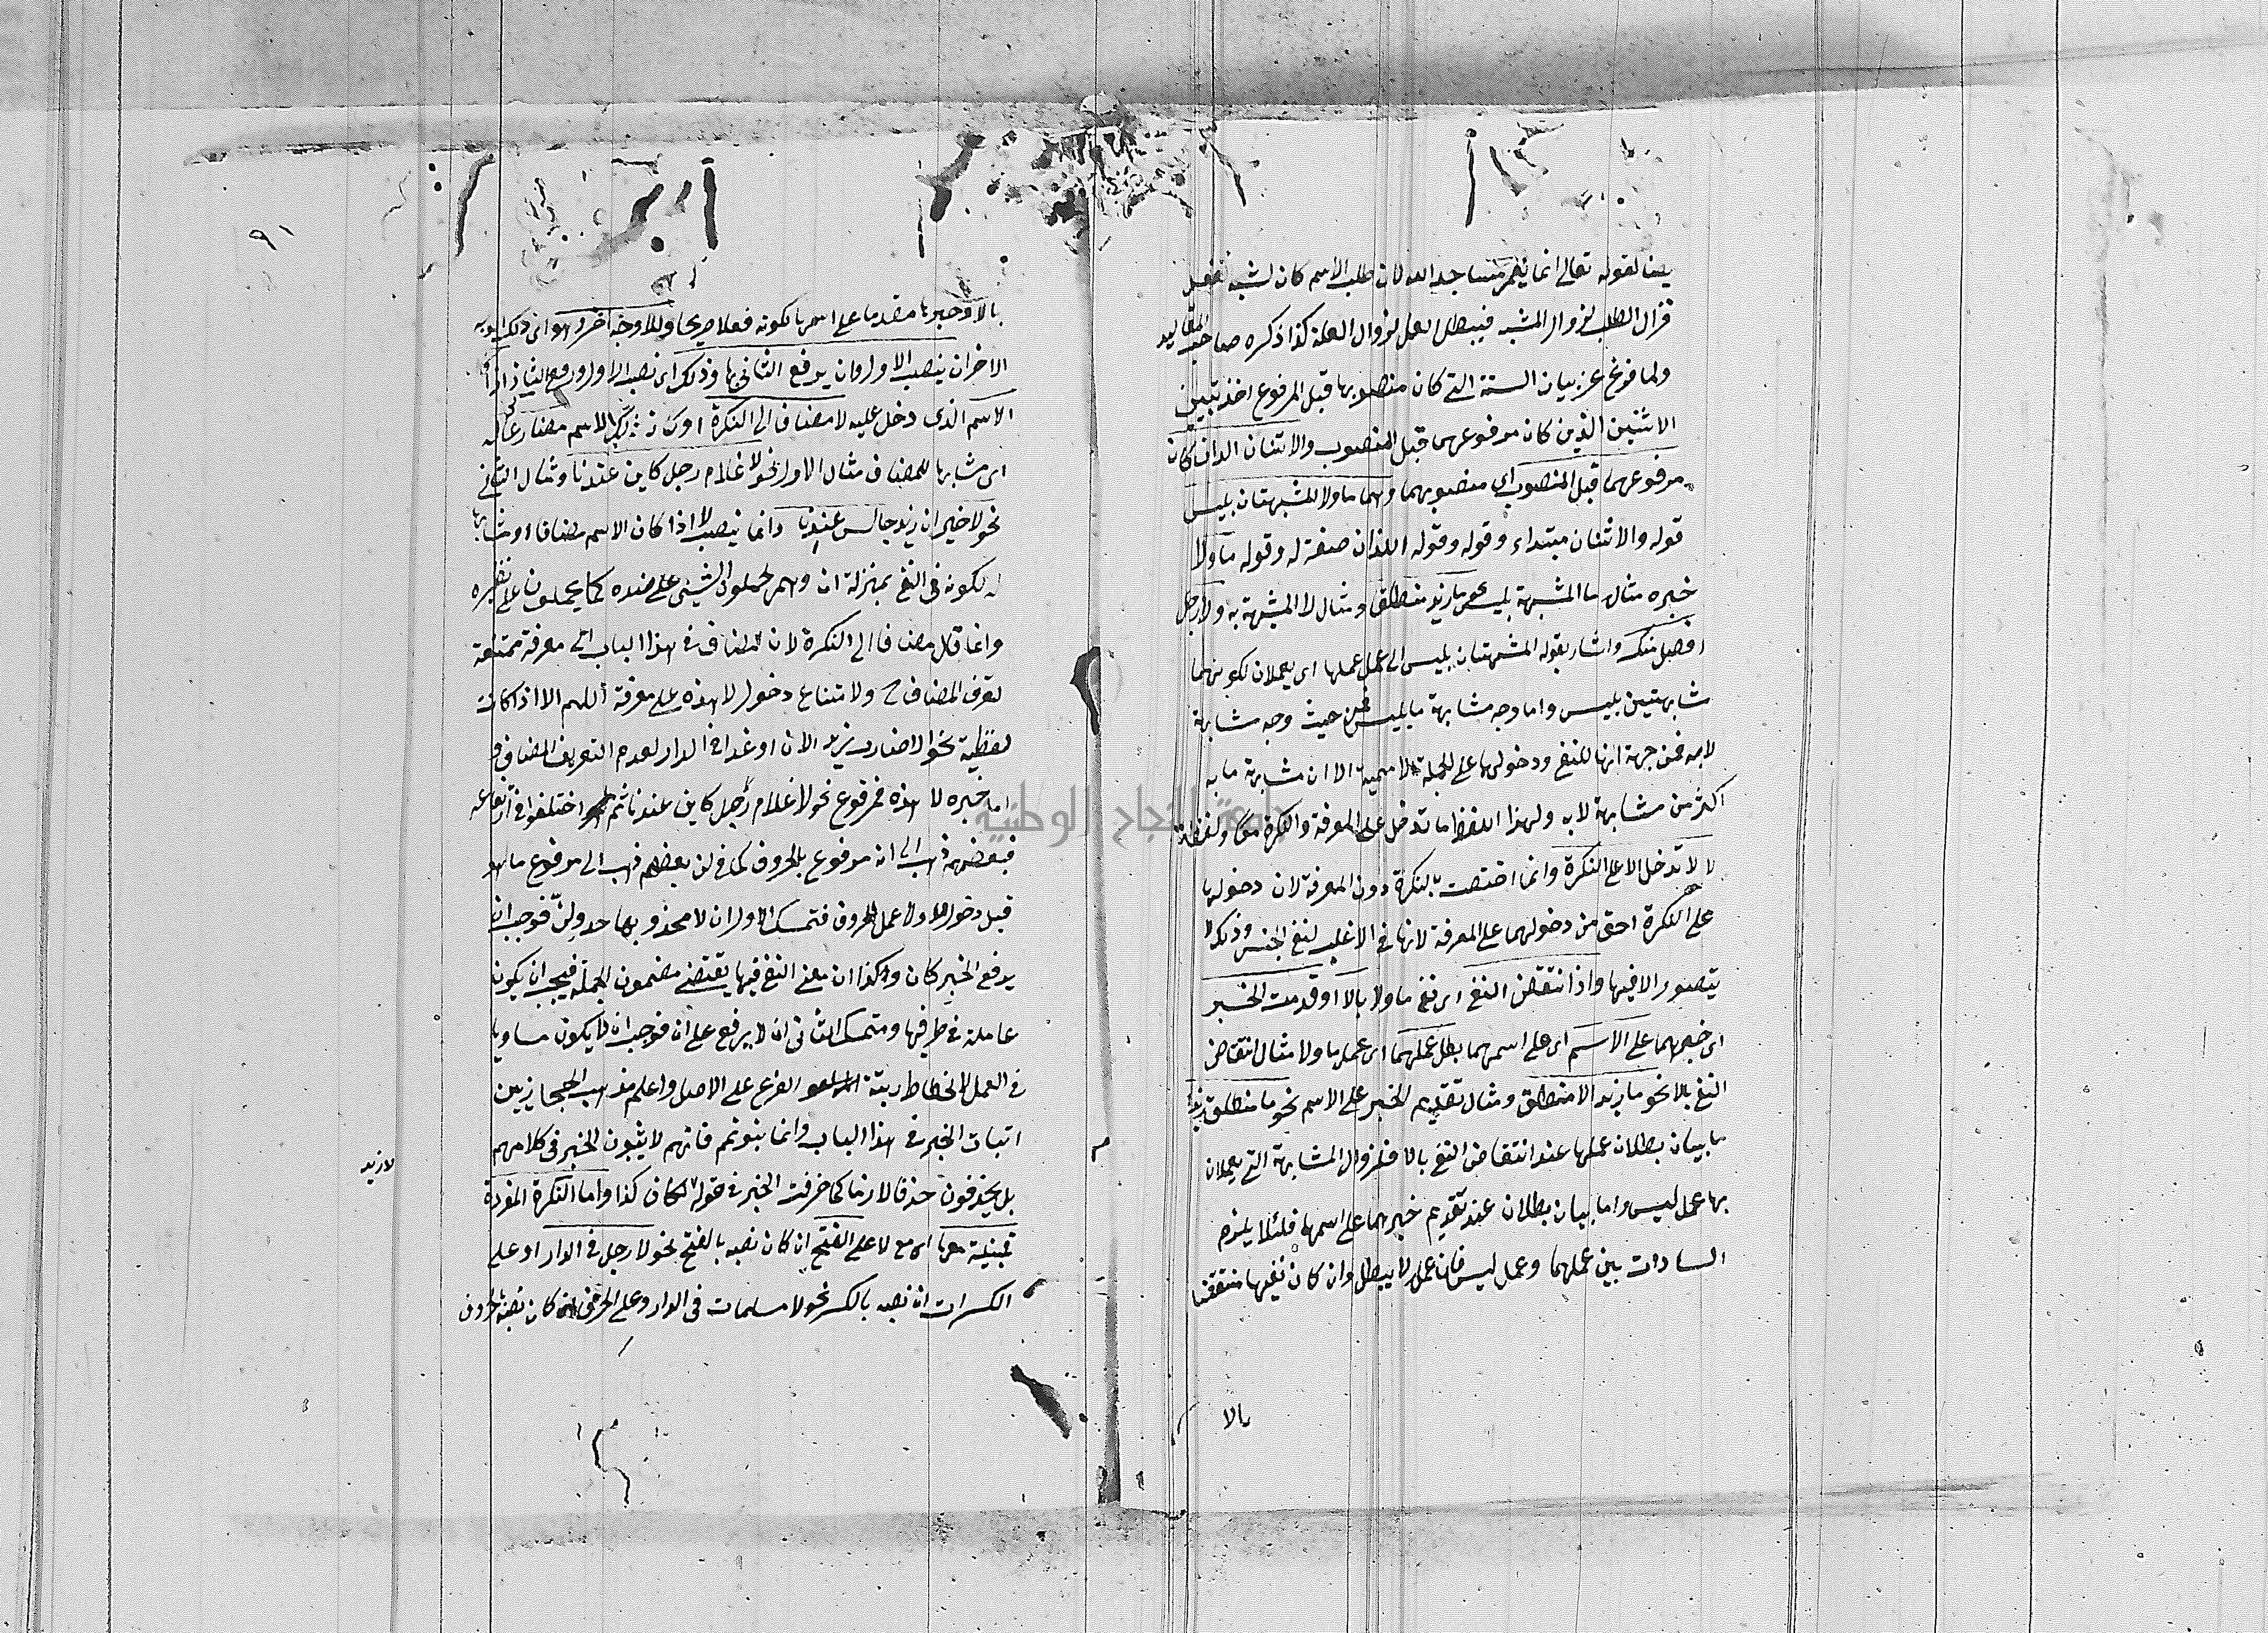 يضا لقوله تعالى انما يعمر مساجد الله لان طلب الاسم كان لشبه الفعل
فزال الطلب لزوال المشبه فيبطل العمل لزوال العلة كذا ذكره صاحب المقاليد
ولما فرغ عن بيان الستة التى كان منصوبها قبل المرفوع اخذ تبيين
الاثنين الذين كان مرفوعهما قبل المنصوب والاثنان الذان كان
مرفوعهما قبل المنصوب اى منصوبهما وهما ما ولا المشبهتان بليس
قوله والاثنان مبتداء وقوله وقوله اللذان صفة له وقوله ما ولا
خبره مثال ما المشبهة بليس ما زيد منطلقا ومثال لا المشبهة به ولا رجل
افضل منك واشار بقوله المشبهتان بليس الى عمل عملها اى يعملان لكونهما
مشابهتين بليس واما وجه مشابهة ما بليس فمن حيث وجه مشابهة
لا به فمن جهة انها للنفى ودخولها على الجملة الاسمية الا ان مشابهة ما به
اكثر من مشابهة لا به ولهذا اللفظ ما تدخل على المعرفة والنكرة معا ولفظة
لا لا تدخل الا على النكرة وانما اختصت بالنكرة دون المعرفة لان دخولها
على النكرة احق من دخولهما على المعرفة لانها فى الاغلب لنفى الجنس وذلك لا
يتصور الا فيها واذا انتقض النفى اى نفى ما ولا بالا او قدمت الخبر
اى خبرهما على الاسم اى على اسمهما بطل عملهما اى عمل ما ولا مثال انتقاض
النفى بالا نحو ما زيد الا منطلق ومثال تقديم الخبر على الاسم نحو ما منطلق زيد
ما بيان بطلان عملها عند انتقاض النفى بالا فلزوال المشابهة التى يعملان
بها عمل ليس واما بيان بطلان عند تقديم خبرهما على اسمها فلئلا يلزم
المساوات بين عملهما وعمل ليس فان عمل لا يبطل وان كان نفيها منتقضا
بالا
٩١
بالا وخبرها مقدما على اسمها لكونه فعلا صريحا وللا وجه اخر وهو اى ذلك الوجه
الاخر ان ينصب الاول وان يرفع الثانى بها وذلك اى نصب الاول ورفع الثانى اذا
الاسم الذى دخل عليه لا مضافا الى النكرة او كان ذلك الاسم مضارعا له
اى مشابها للمضاف مثال الاول نحو لا غلام رجل كاين عندنا ومثال الثانى
نحو لا خيرا من زيد جالس عندنا وانما ينصب لا اذا كان الاسم مضافا او مشابها
له لكونه فى النفى بمنزلة ان وهم يحملون الشئ على ضده كما يحملون على نظيره
وانما قال مضافا الى النكرة لان المضاف فى هذا الباب الى معرفة ممتنعة
لتعرف المضاف ح ولامتناع دخول لا هذه على معرفة اللهم الا اذا كانت
لفظية نحو لا ضارب زيد الان او غدا فى الدار لعدم التعريف المضاف
اما خبره لا هذه فمرفوع نحو لا غلام رجل كاين عندنا ثم اختلفوا فى ارتفاعه
فبعضهم ذهب الى انه مرفوع بالحروف كما فى ان بعضهم ذهب الى مرفوع ما هو
قبل دخول لا ولا عمل للحروف فتمسك الاول ان لا محذو بها حذو ان فوجب ان
يرفع الخبر كان وهكذا ان معنى النفى فيها يقتضى مضمون الجملة فيجب ان يكون
عاملة فى طرفيها ومتمسك الثانى ان لا يرفع على ان فوجب ان لا يكون مساويا
فى العمل لانحطاط رتبة الفرع على الاصل واعلم مذهب الحجازيين
اثبات الخبر فى هذا الباب وانما بنو تميم فانهم لا يثبون الخبر فى كلامهم
بل يحذفون حذفا لازما كما حرفت الخبر فى قوله لكان كذا واما النكرة المفردة
فمبنية معها اى مع لا على الفتح ان كان نصبه بالفتح نحو لا رجل فى الدار او على
الكسرات ان نصبه بالكسر نحو لا مسلمات فى الدار وعلى الحرف ان كان نصبه بالحروف
لا زيد
جامعة النجاح الوطنية